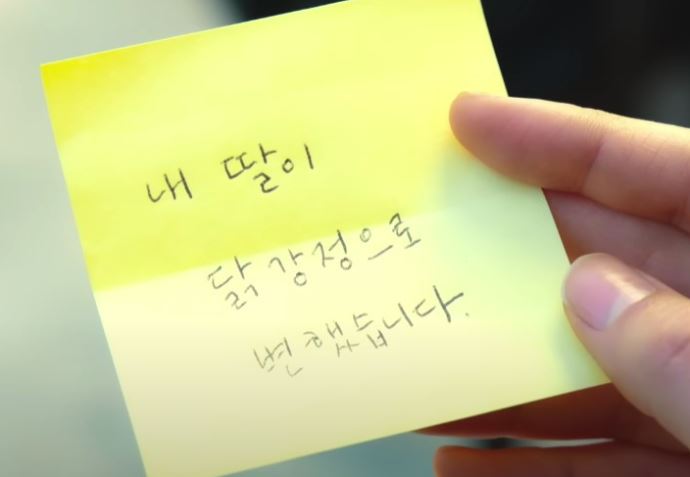 내 딸이
닭강정으로
변했습니다.